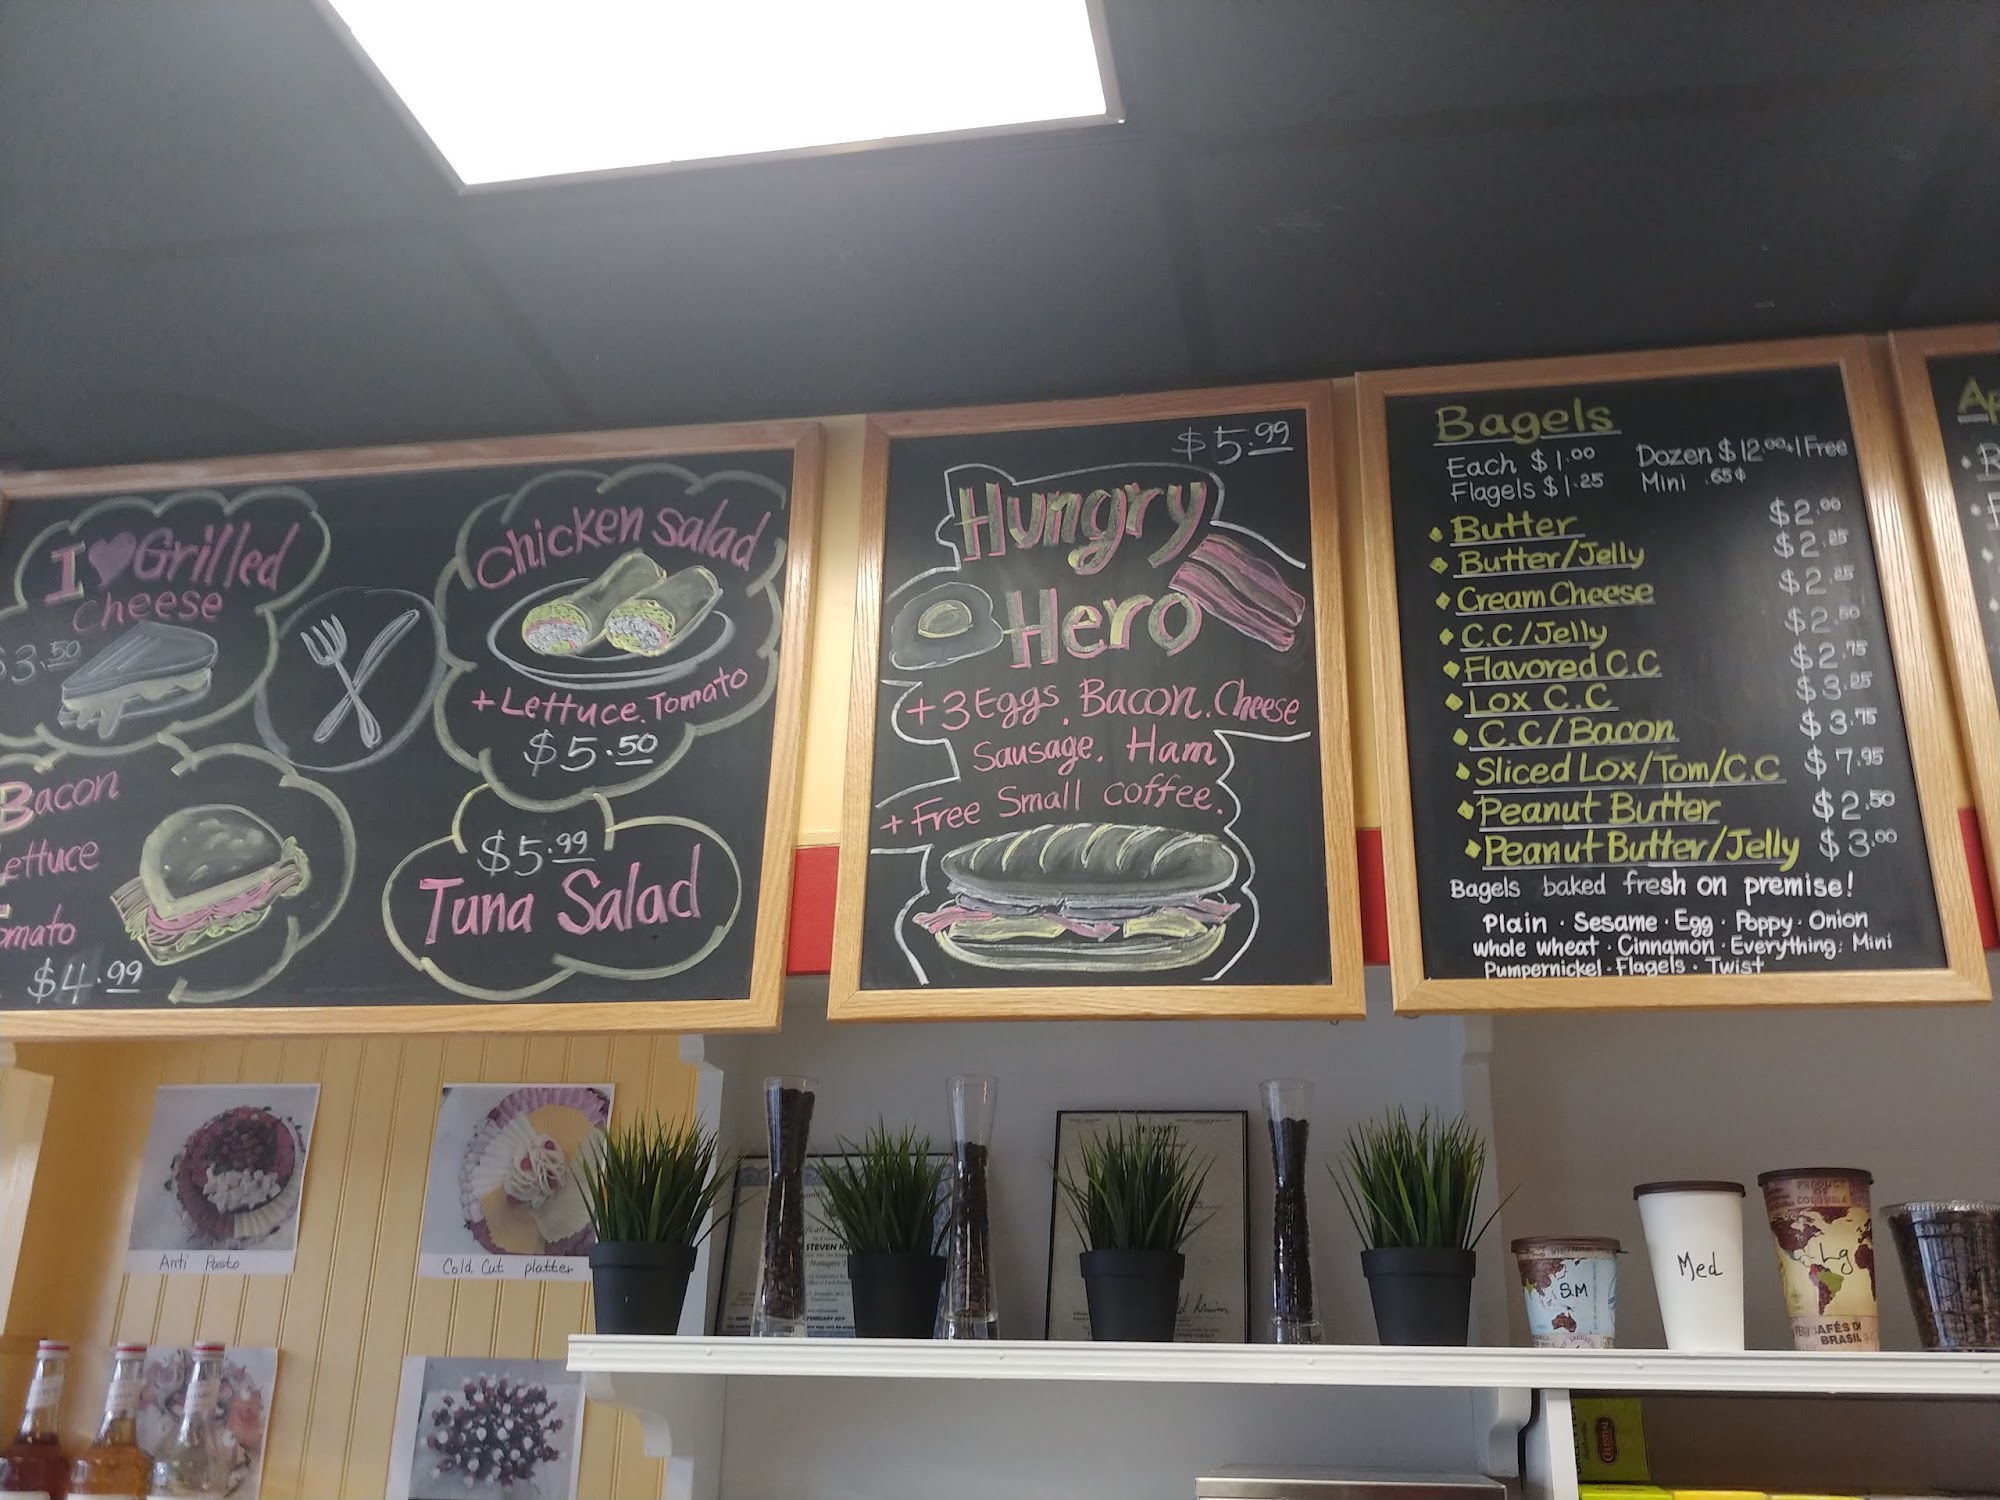 I ♥ Grilled
Cheese
$3.50
Bacon
Lettuce
$4.99
Chicken Salad
+ Lettuce. Tomato
$5.50
$5.99
Tuna Salad
$5.99
Hungry
Hero
+ 3 Eggs. Bacon. Cheese
Sausage. Ham
+ Free Small coffee.
Bagels
Each $1.00 Dozen $12.00+1 Free
Flagels $1.25 Mini .65¢
Butter $2.00
Butter/Jelly $2.25
Cream Cheese $2.25
C.C/Jelly $2.50
Flavored C.C $2.75
Lox C.C $3.25
C.C/Bacon $3.75
Sliced Lox/Tom/C.C $7.95
Peanut Butter $2.50
Peanut Butter/Jelly $3.00
Bagels baked fresh on premise!
Plain · Sesame · Egg · Poppy · Onion
whole wheat · Cinnamon · Everything. Mini
Pumpernickel · Flagels · Twist
Ap
Anti Pasto
Cold Cut platter
STEVEN
FEBRUARY
S.M
Med
PRODUCT
OF
COLOMBIA
Lg
CAFÉS DO
BRASIL